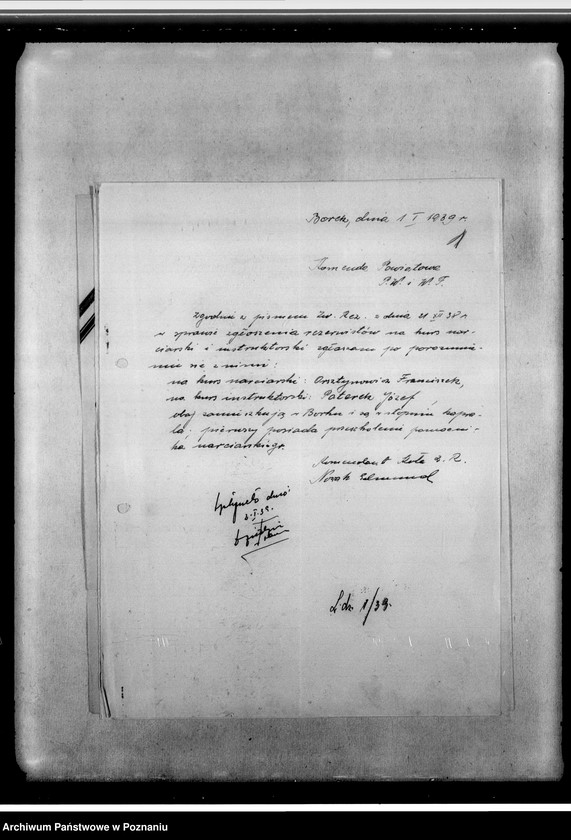 Borek, dnia 1 I 1939 r.
1
Komenda Powiatowa
P.W. i W.F.
Zgodnie z pismem Zw. Rez. z dnia 21 XII 38 r.
w sprawie zgłoszenia rezerwistów na kurs nar-
ciarski i instruktorski zgłaszam po porozumie-
niu się z nimi:
na kurs narciarski: Orsztynowicz Franciszek,
na kurs instruktorski: Paterek Józef,
obaj zamieszkują w Borku i są w stopniu kapra-
la; pierwszy posiada przeszkolenie pomocni-
ka narciarskiego.
Komendant Koła Z. R.
Nowak Edmund
Wpłynęło dnia:
I.39.
L.dz. 1/39.
Archiwum Państwowe w Poznaniu